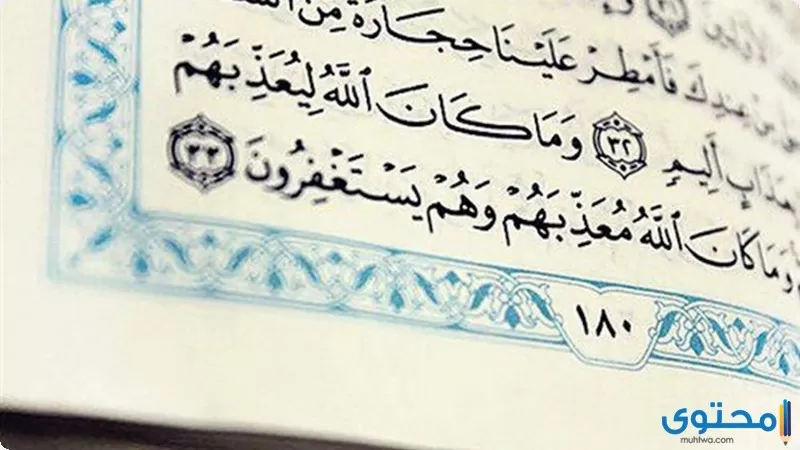 الأَوَّلِينَ ٣١
مِنْ عِندِكَ فَأَمْطِرْ عَلَيْنَا حِجَارَةً مِّنَ
بِعَذَابٍ أَلِيمٍ ٣٢ وَمَا كَانَ ٱللَّهُ لِيُعَذِّبَهُمْ
وَمَا كَانَ ٱللَّهُ مُعَذِّبَهُمْ وَهُمْ يَسْتَغْفِرُونَ ٣٣
١٨٠
محتوى
muhtwa.com